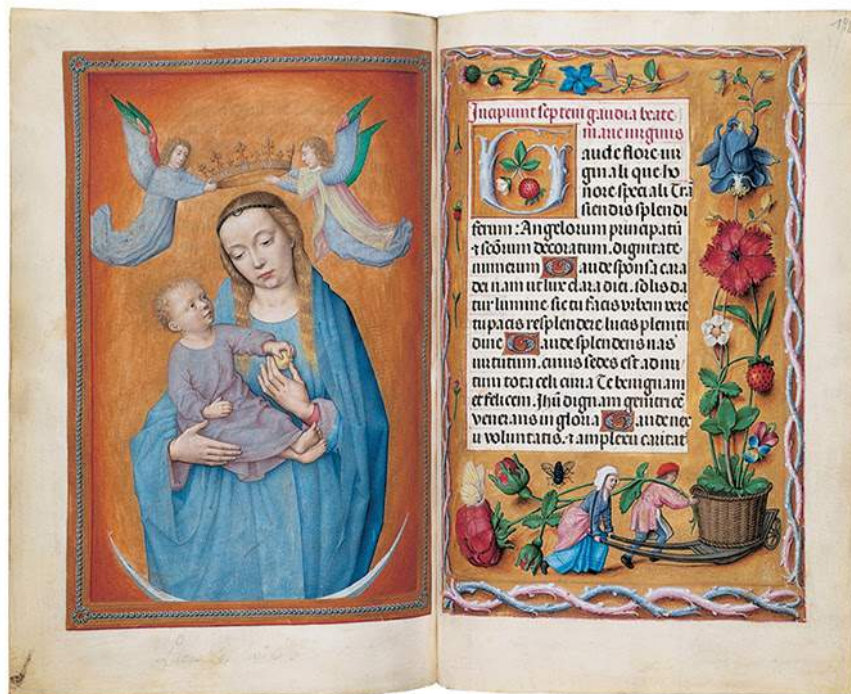 Incipiunt septem gaudia beate
marie uirginis
Gaude flore uir
ginali que ho
nore speciali Trā
sendis splendi
ferum : Angelorum principatū
⁊ scōrum decoratum. dignitate
numerum Gaude sponsa cara
dei nam ut lux clara diei. solis da
tur lumine sic tu facis orbem vere
tu pacis resplendere lucis plenitu
dine Gaude splendens uas
uirtutum. cuius sedes est ad nu
tum tota celi curia Te benignam
et felicem. Jhū dignam genitricē
venerans in gloria Gaude nex
u voluntatis. ⁊ amplexu caritat